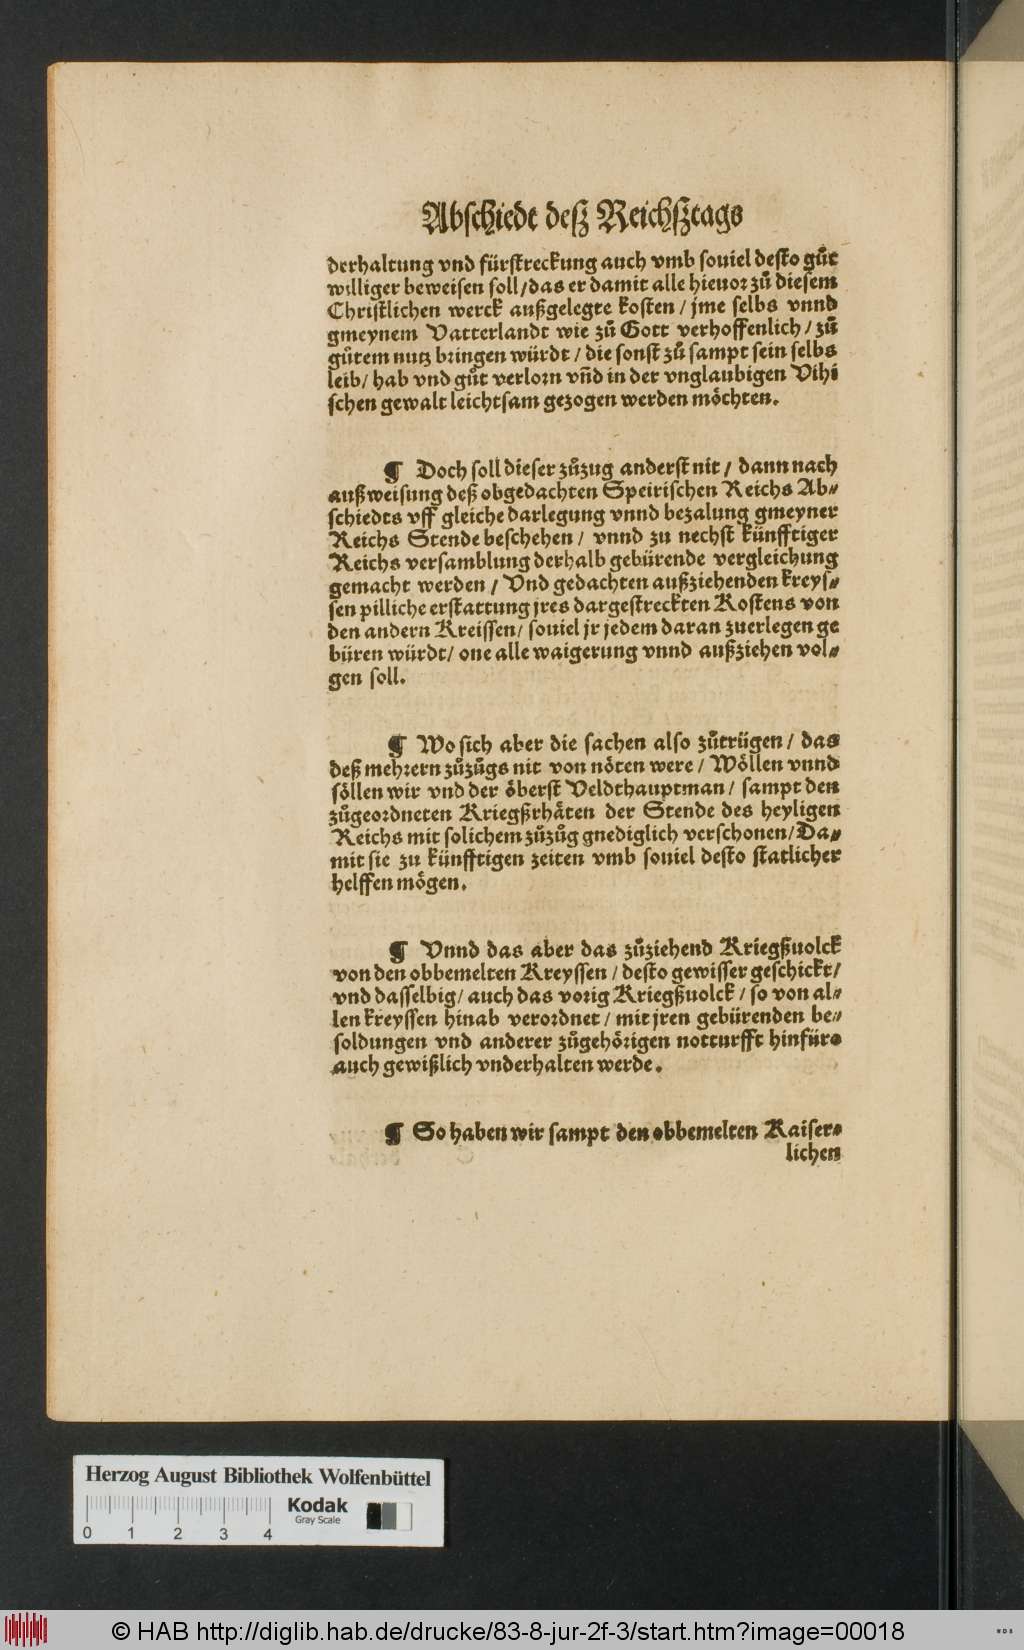 Abschiedt deß Reichßtags
derhaltung vnd fürstreckung auch vmb souiel desto gůt
williger beweisen soll/das er damit alle hieuor zů diesem
Christlichen werck außgelegte kosten/jme selbs vnnd
gmeynem Vatterlandt wie zů Gott verhoffenlich/zů
gůtem nutz bringen würdt/die sonst zů sampt sein selbs
leib/hab vnd gůt verlorn vñd in der vnglaubigen Vihi
schen gewalt leichtsam gezogen werden möchten.
¶ Doch soll dieser zůzug anderst nit/dann nach
außweisung deß obgedachten Speirischen Reichs Ab⸗
schiedts vff gleiche darlegung vnnd bezalung gmeyner
Reichs Stende beschehen/vnnd zu nechst künfftiger
Reichs versamblung derhalb gebürende vergleichung
gemacht werden/Vnd gedachten außziehenden kreys⸗
sen pilliche erstattung jres dargestreckten Kostens von
den andern Kreissen/souiel jr jedem daran zuerlegen ge
büren würdt/one alle waigerung vnnd außziehen vol⸗
gen soll.
¶ Wo sich aber die sachen also zůtrügen/das
deß mehrern zůzůgs nit von nöten were/Wöllen vnnd
söllen wir vnd der öberst Veldthauptman/sampt den
zůgeordneten Kriegßrhäten der Stende des heyligen
Reichs mit solichem zůzůg gnediglich verschonen/Da⸗
mit sie zu künfftigen zeiten vmb souiel desto statlicher
helffen mögen.
¶ Vnnd das aber das zůziehend Kriegßuolck
von den obbemelten Kreyssen/desto gewisser geschickt/
vnd dasselbig/auch das vorig Kriegßuolck/so von al⸗
len kreyssen hinab verordnet/mit jren gebürenden be⸗
soldungen vnd anderer zůgehörigen notturfft hinfüro
auch gewißlich vnderhalten werde.
¶ So haben wir sampt den obbemelten Kaiser⸗
lichen
Herzog August Bibliothek Wolfenbüttel
Kodak
Gray Scale
0 1 2 3 4
© HAB http://diglib.hab.de/drucke/83-8-jur-2f-3/start.htm?image=00018